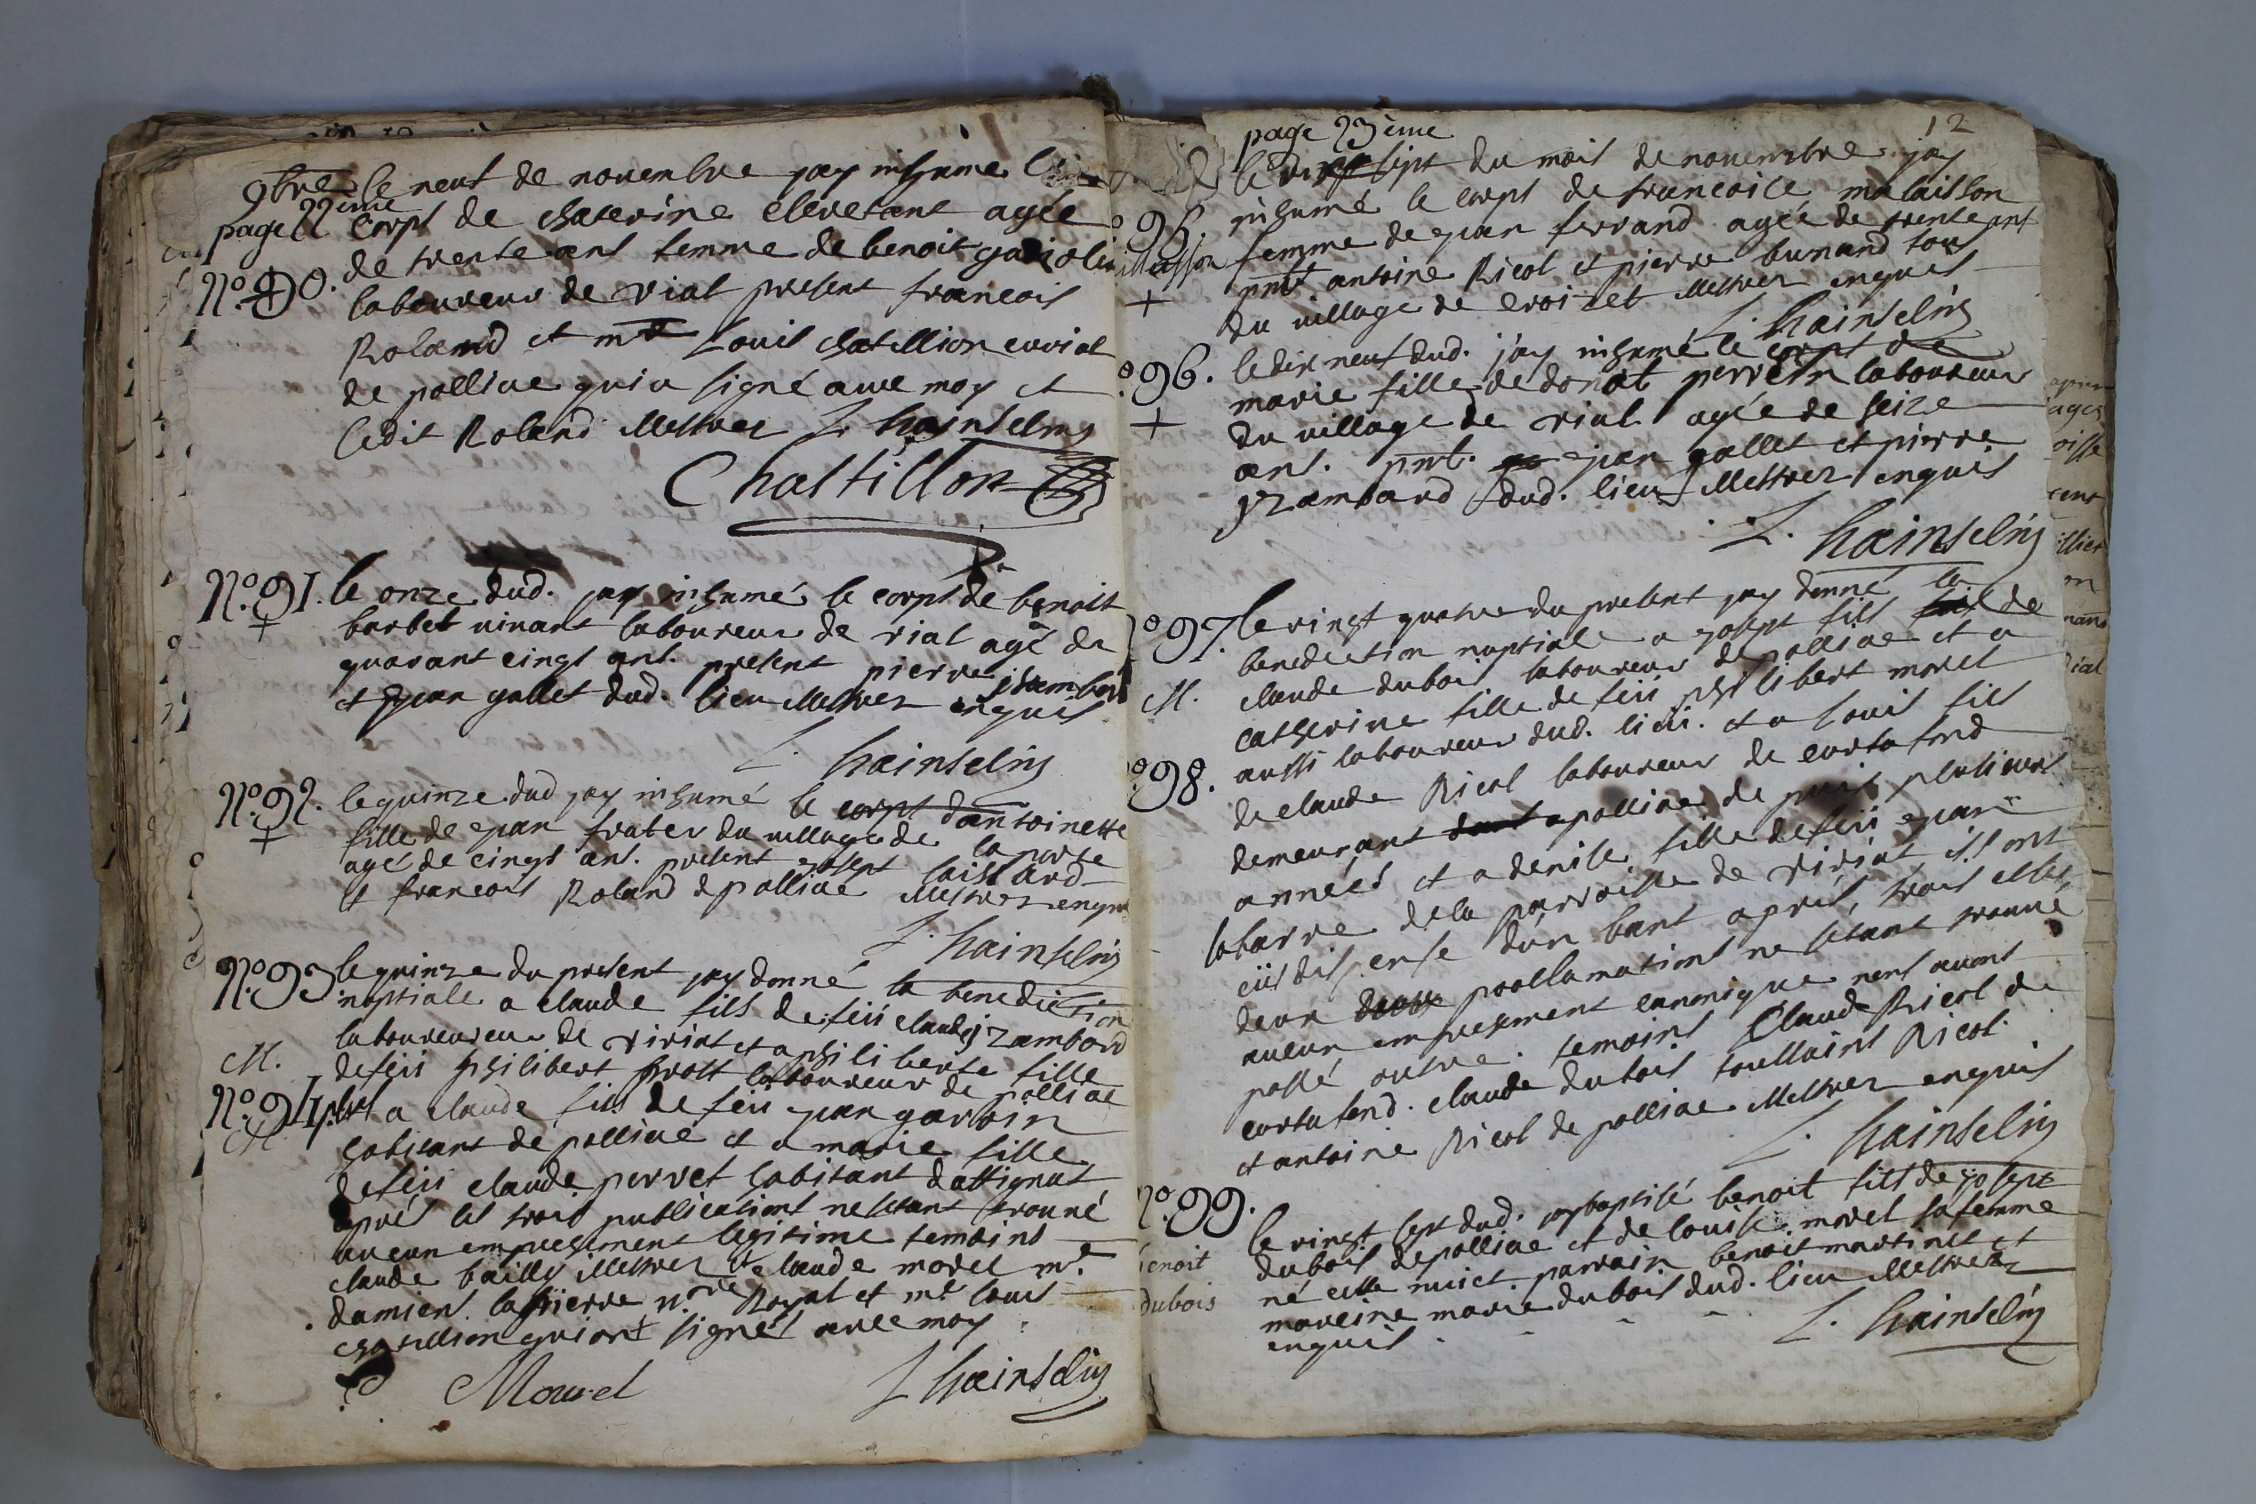 9bre le neuf de novembre jay inhumé le
page 22eme corps de chaterine cleretant agée
de trente ans femme de benoit
N.o 90. laboureur de viat present francois
Roland et mre Louis chatillion curial
de polliac qui a signé avec moy et
ledit Roland illettrez L. hainselin
Chastillon
N.o 91. le onze dud. jay inhumé le corps de benoit
+ barbet vivant laboureur de viat agé de
quarant cinqt ans. present pierre
et jean gallet dud. lieu illettrez enquis
L. hainselin
N.o 92. le quinze dud jay inhumé le corps dantoinette
+ fille de jean frater du village de la porte
agé de cinqt ans. present josept
et francois Roland de polliac illettrez enquis
L. hainselin
N.o 93 le quinze du present jay donné la benediction
nuptiale a claude fils de feu claude jzambard
laboureureur de viriat et a philiberte fille
M. de feu philibert prost laboureur de polliac
N.o 94. plus a claude fils de feu jean garbin
M habitant de polliac et a marie fille
de feu claude perret habitant dattignat
aprés les trois publications ne setant trouné
aucun empeschement legitime temoins
claude bailly illettrez et claude morel mre
damiens lapierre nore Royal et mre louis
chatillion qui ont signés avec moy
Mourel L hainselin
page 23ème 12
le dix sept du mois de novembre jay
95. inhumé le corps de francoise malaisson
femme de jean ferrand agée de trente ans
+ pnts antoine Ricol et pierre bunand tous
du village de croizet illettrez enquis
L. hainselin
96. le dix neuf dud. jay inhumé le corps de
marie fille de donat perrein laboureur
+ du village de viat agée de seize
ans. pnt. jean gallet et pierre
jzambard dud. lieu illettrez enquis
L. hainselin
97. le vingt quatre du present jay donné la
benediction nuptiale a josept fils de
claude dubois laboureur de polliac et a
M. catherine fille de feu philibert morel
aussi laboureur dud. lieu. et a louis fils
98. de claude Ricol laboureur de curtafond
demeurant a polliac de puis plusieurs
années et a denise fille de feu jean
labarre de la parroisse de viriat, ils ont
eus dispense dun bant aprés, trois et les
deux proclamations ne setant trouné
aucun empeschement canonique nous avons
passé outre. temoins Claude Ricol de
curtafond. claude dubois toussains Ricol
et antoine Ricol de polliac illettrez enquis
L. hainselin
no. 99. le vingt sept dud. jay baptisé benoit fils de josept
benoit dubois de polliac et de louise morel sa femme
dubois né cette nuict. parrain benoit martinet et
mareine marie dubois dud. lieu illettrez
enquis L. hainselin